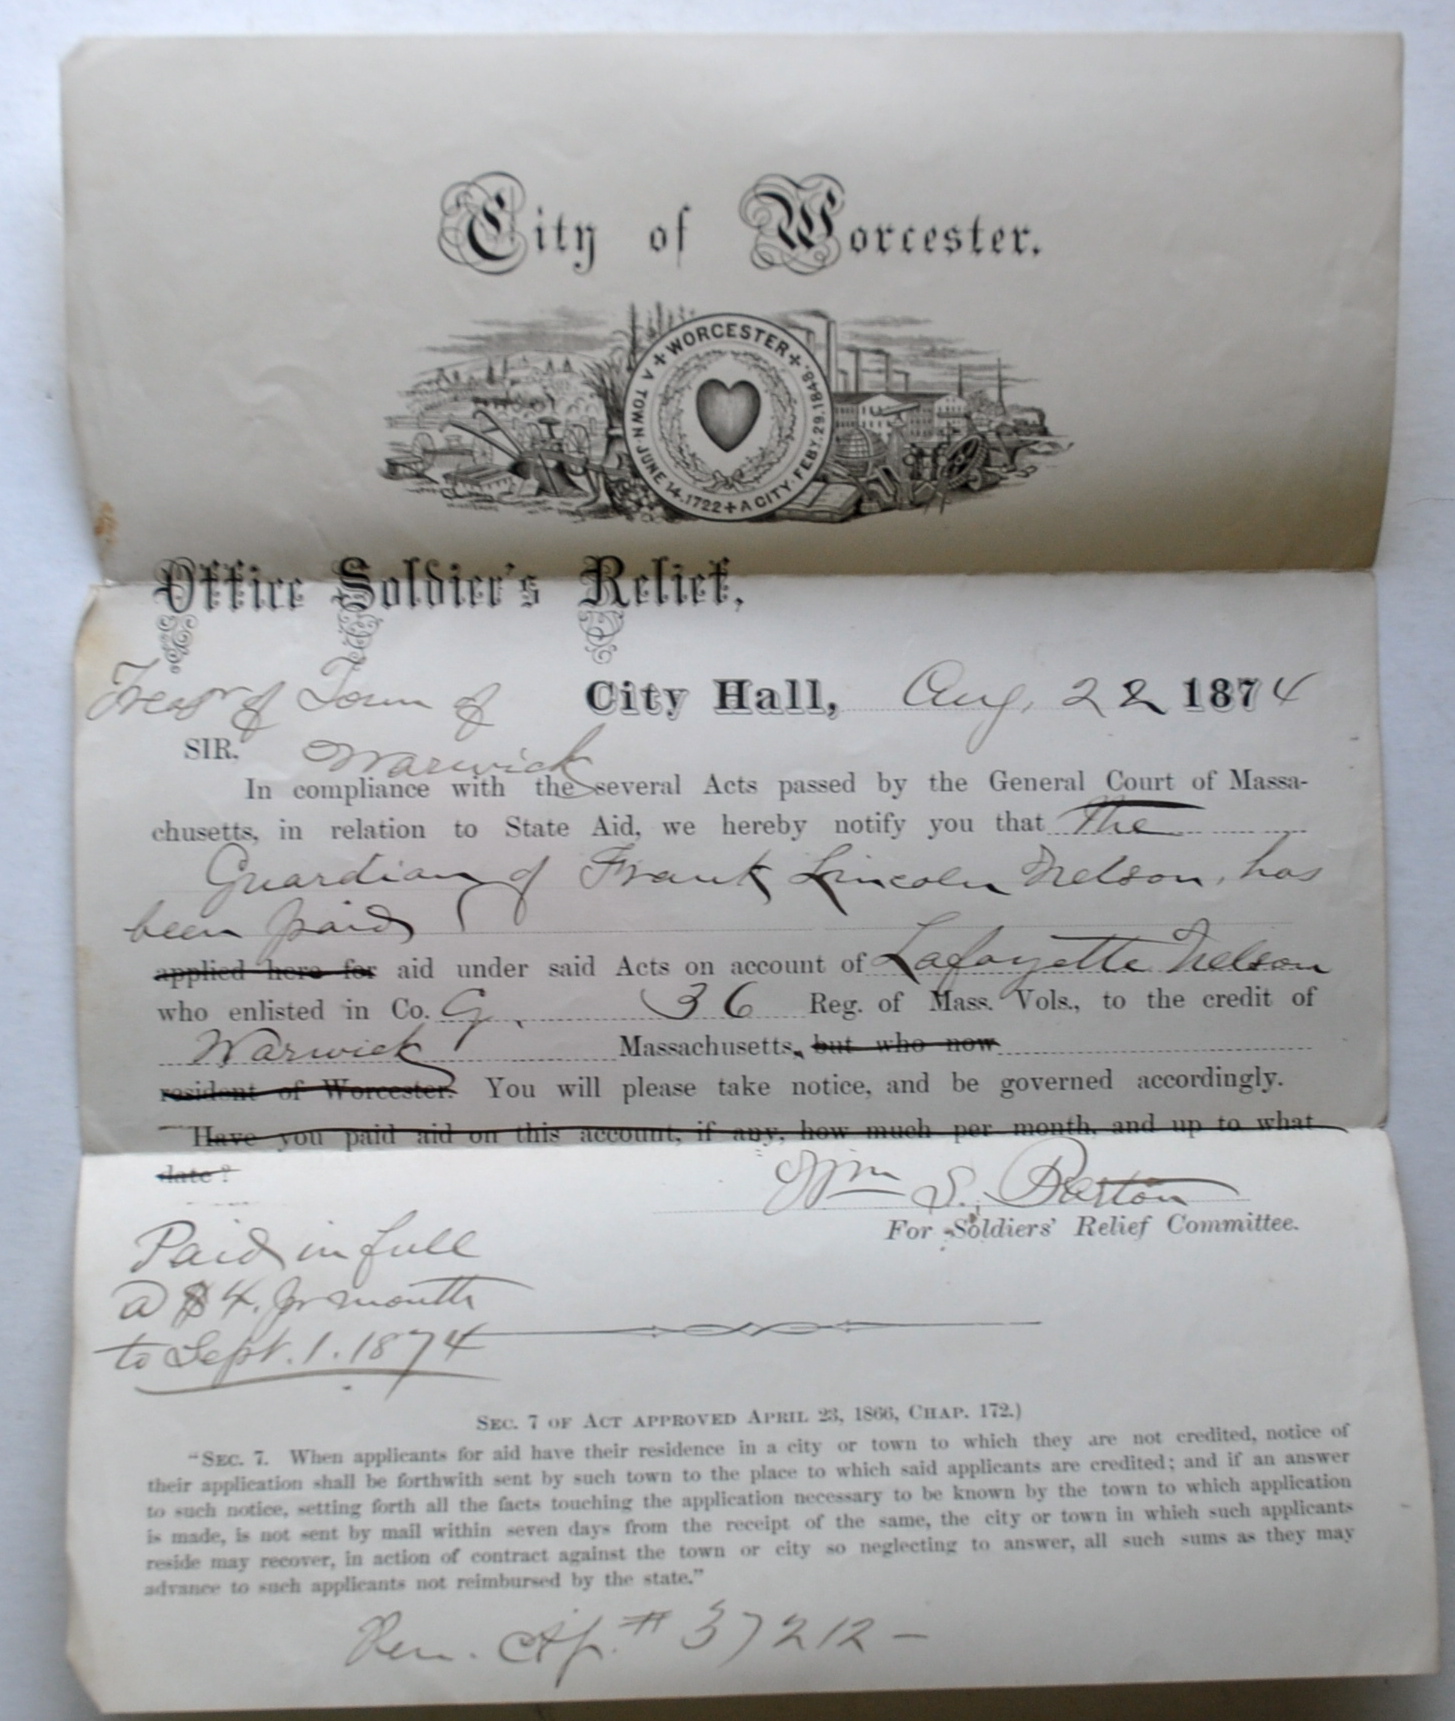 City of Worcester.
+ WORCESTER + A CITY, FEBY. 29. 1848. + A TOWN JUNE 14, 1722
Office Soldier's Relief,
Treasr of Town of City Hall, Aug, 22 1874
SIR. Warwick
In compliance with the several Acts passed by the General Court of Massa-
chusetts, in relation to State Aid, we hereby notify you that The
Guardian of Frank Lincoln Nelson, has
been paid
applied here for aid under said Acts on account of Lafayette Nelson
who enlisted in Co. G, 36 Reg. of Mass. Vols., to the credit of
Warwick Massachusetts, but who now
resident of Worcester. You will please take notice, and be governed accordingly.
Have you paid aid on this account, if any, how much per month, and up to what
date?
Wm S. Barton
For Soldiers' Relief Committee.
Paid in full
a $4. pr month
to Sept. 1. 1874
SEC. 7 OF ACT APPROVED APRIL 23, 1866, CHAP. 172.)
"SEC. 7. When applicants for aid have their residence in a city or town to which they are not credited, notice of
their application shall be forthwith sent by such town to the place to which said applicants are credited; and if an answer
to such notice, setting forth all the facts touching the application necessary to be known by the town to which application
is made, is not sent by mail within seven days from the receipt of the same, the city or town in which such applicants
reside may recover, in action of contract against the town or city so neglecting to answer, all such sums as they may
advance to such applicants not reimbursed by the state."
# 37212 -